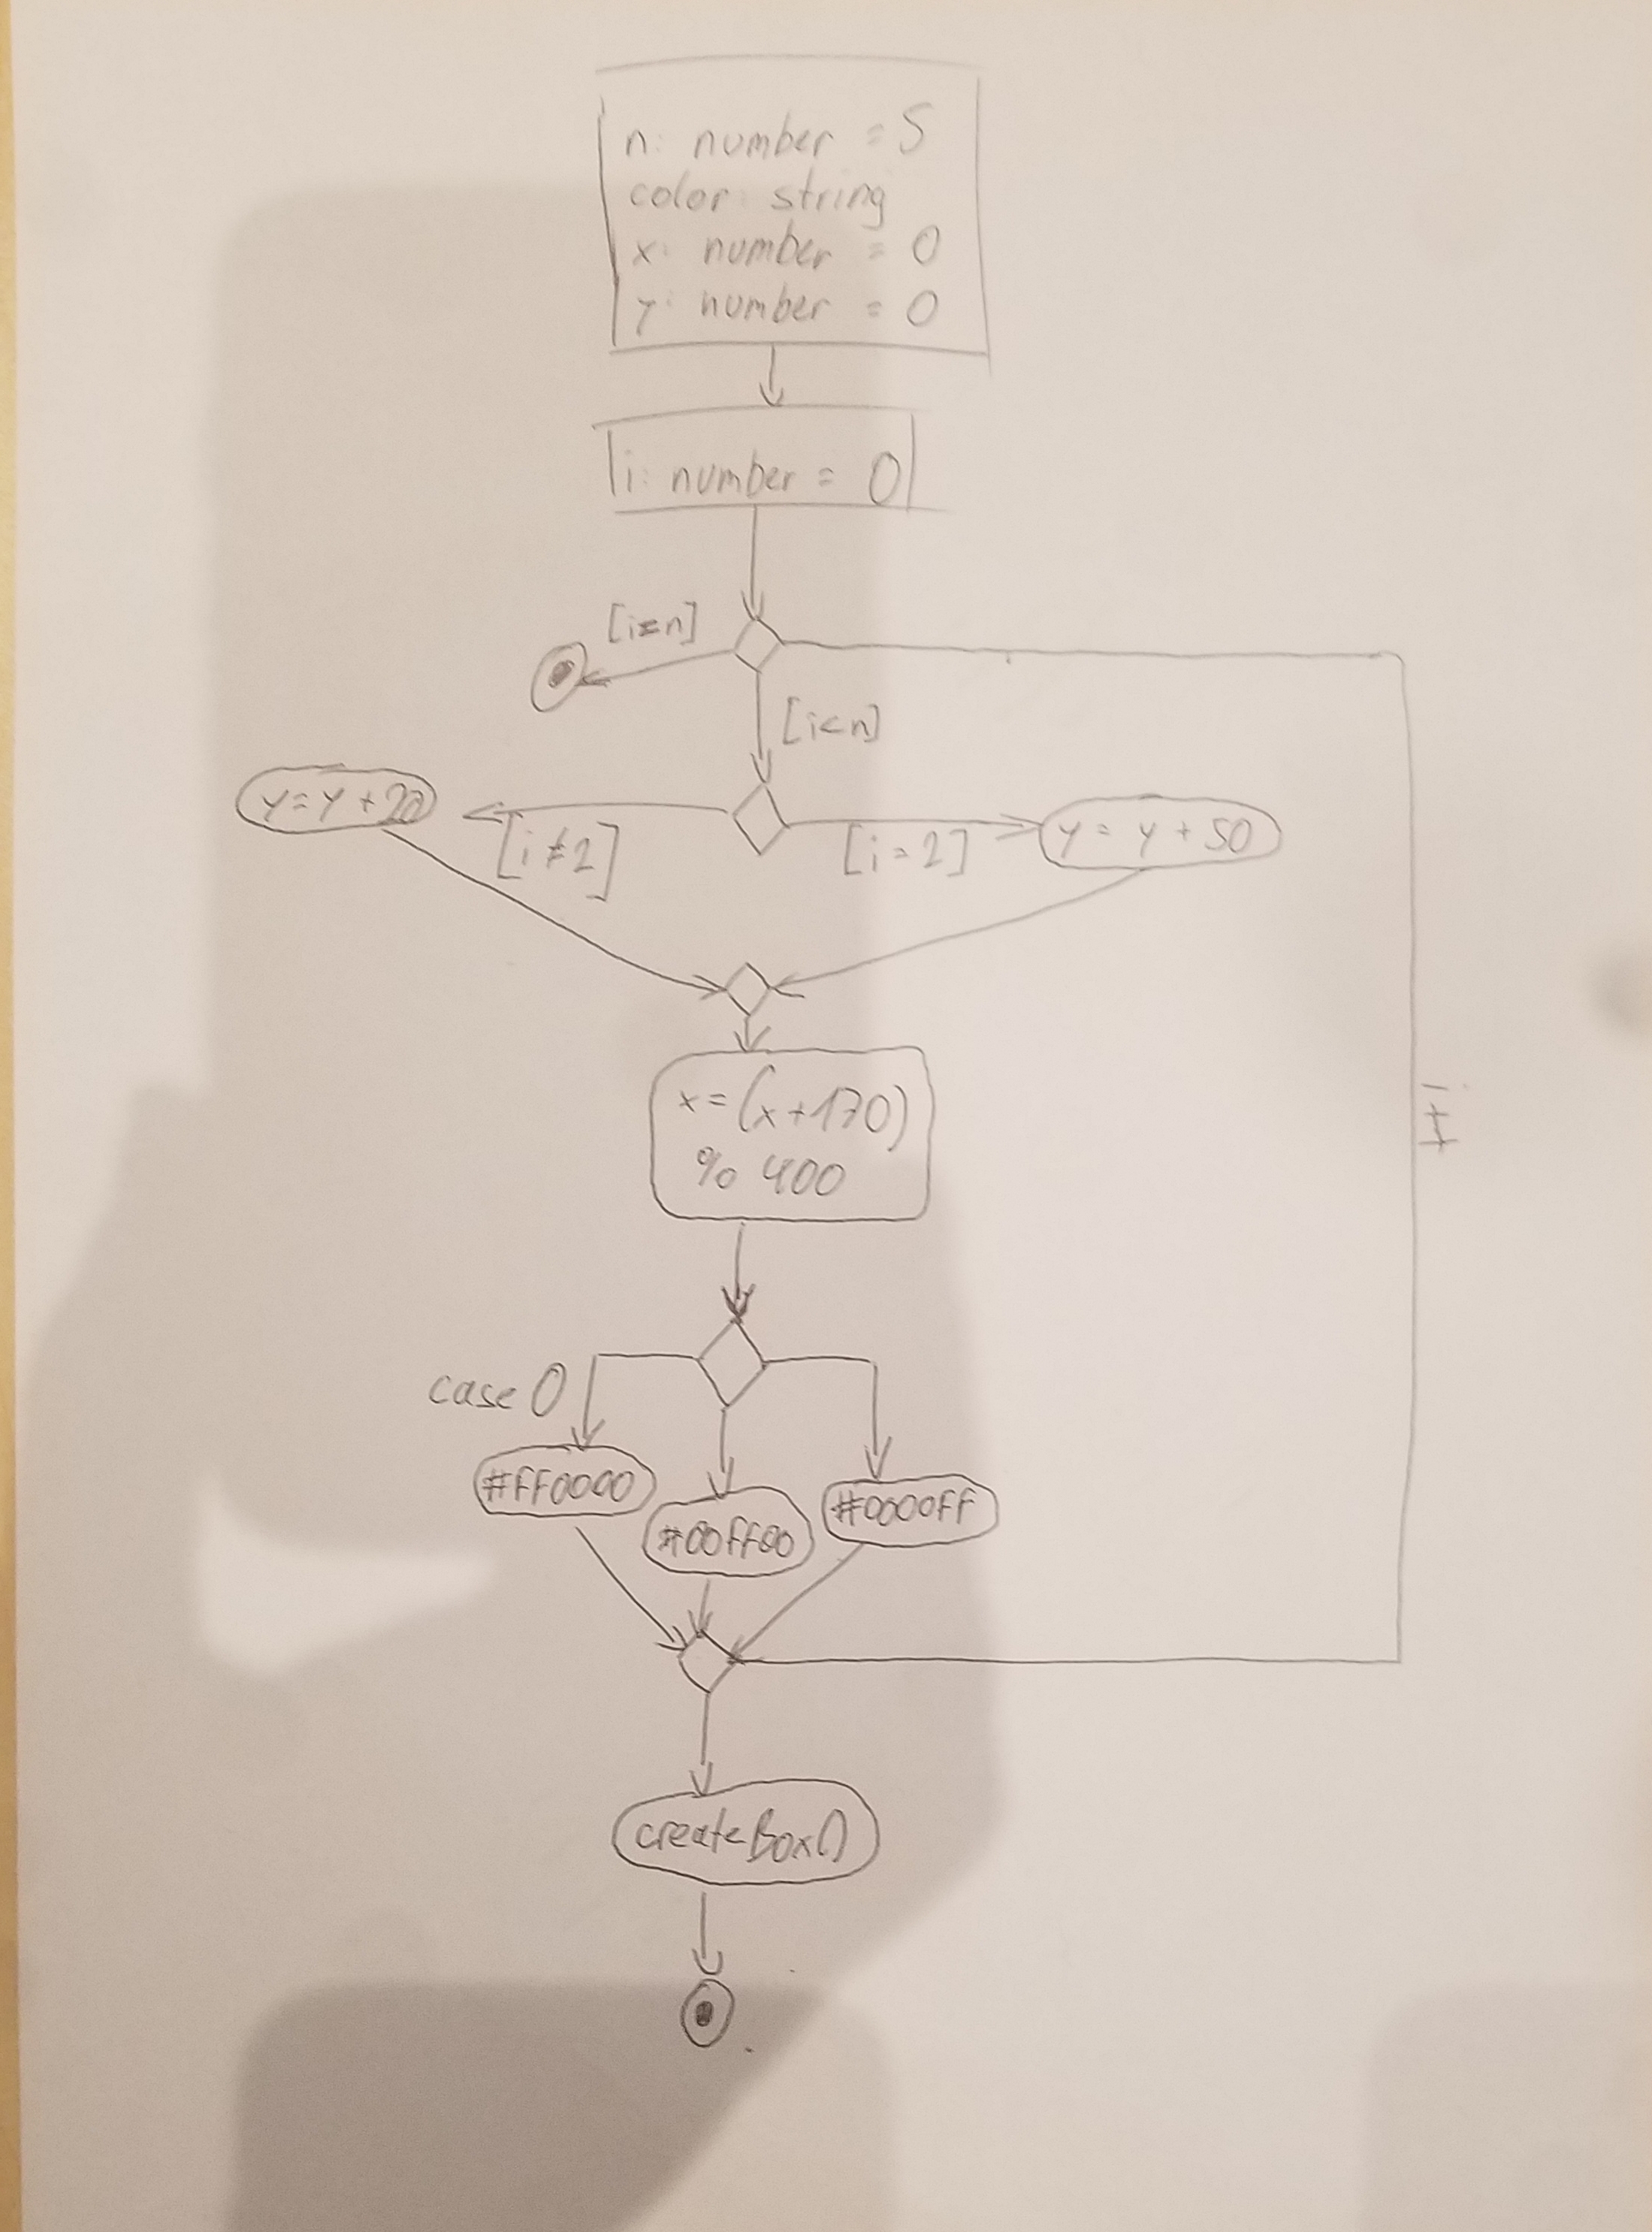 n: number = 5
color: string
x: number = 0
y: number = 0
i: number = 0
[i=n]
[i<n]
y=y+20
[i≠2]
[i=2]
y = y + 50
x=(x+170)
% 400
case 0
#FF0000
#00ff00
#0000FF
createBox()